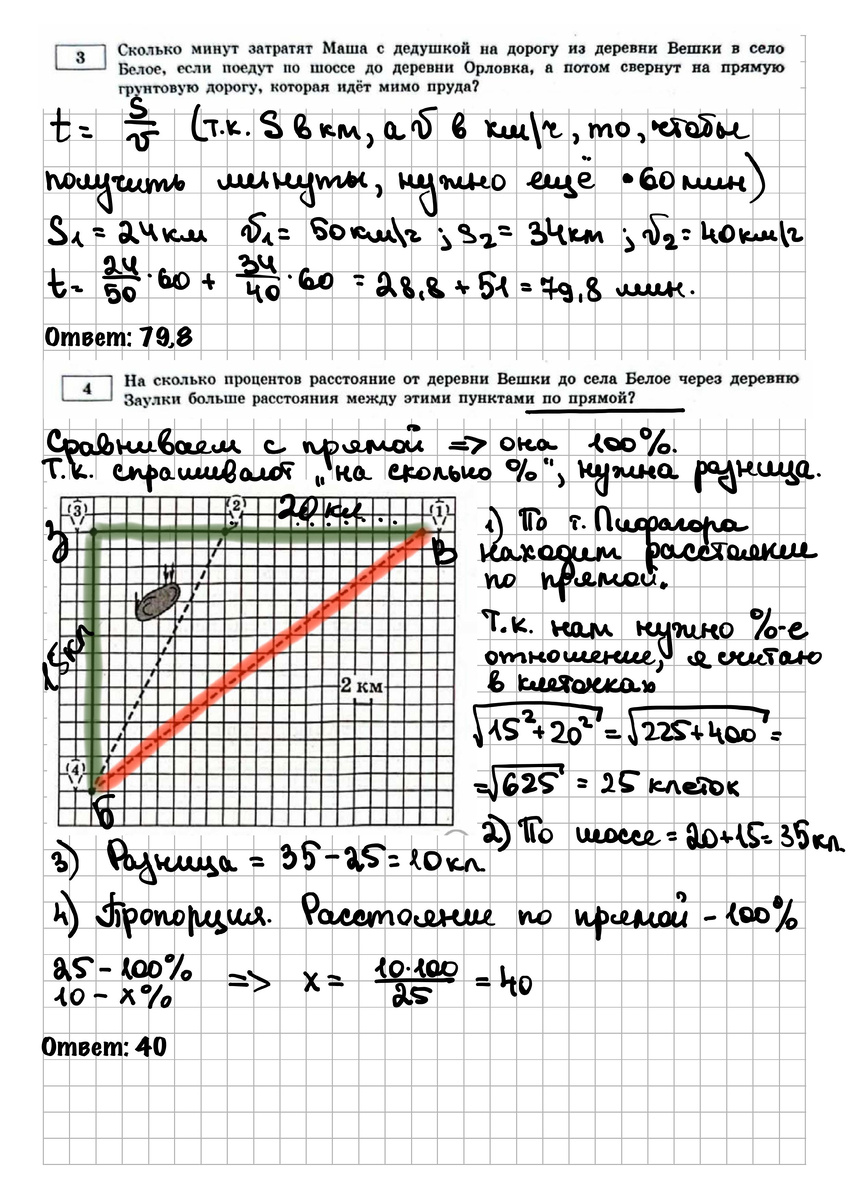 3
Сколько минут затратят Маша с дедушкой на дорогу из деревни Вешки в село
Белое, если поедут по шоссе до деревни Орловка, а потом свернут на прямую
грунтовую дорогу, которая идёт мимо пруда?
t = S/v (т.к. S в км, а v в км/ч, то, чтобы
получить минуты, нужно ещё •60 мин)
S₁ = 24 км v₁ = 50 км/ч ; S₂ = 34 км ; v₂ = 40 км/ч
t = 24/50 · 60 + 34/40 · 60 = 28,8 + 51 = 79,8 мин.
Ответ: 79,8
4
На сколько процентов расстояние от деревни Вешки до села Белое через деревню
Заулки больше расстояния между этими пунктами по прямой?
Сравниваем с прямой => она 100%.
Т.к. спрашивают „на сколько %“, нужна разница.
(3) (2) 20 кл (1)
З В
15 кл
2 км
(4)
Б
1) По т. Пифагора
находим расстояние
по прямой.
Т.к. нам нужно %-е
отношение, я считаю
в клеточках
√15²+20² = √225+400 =
= √625 = 25 клеток
2) По шоссе = 20+15 = 35 кл
3) Разница = 35 – 25 = 10 кл
4) Пропорция. Расстояние по прямой – 100%
25 – 100%
10 – x%
=> x = 10·100/25 = 40
Ответ: 40